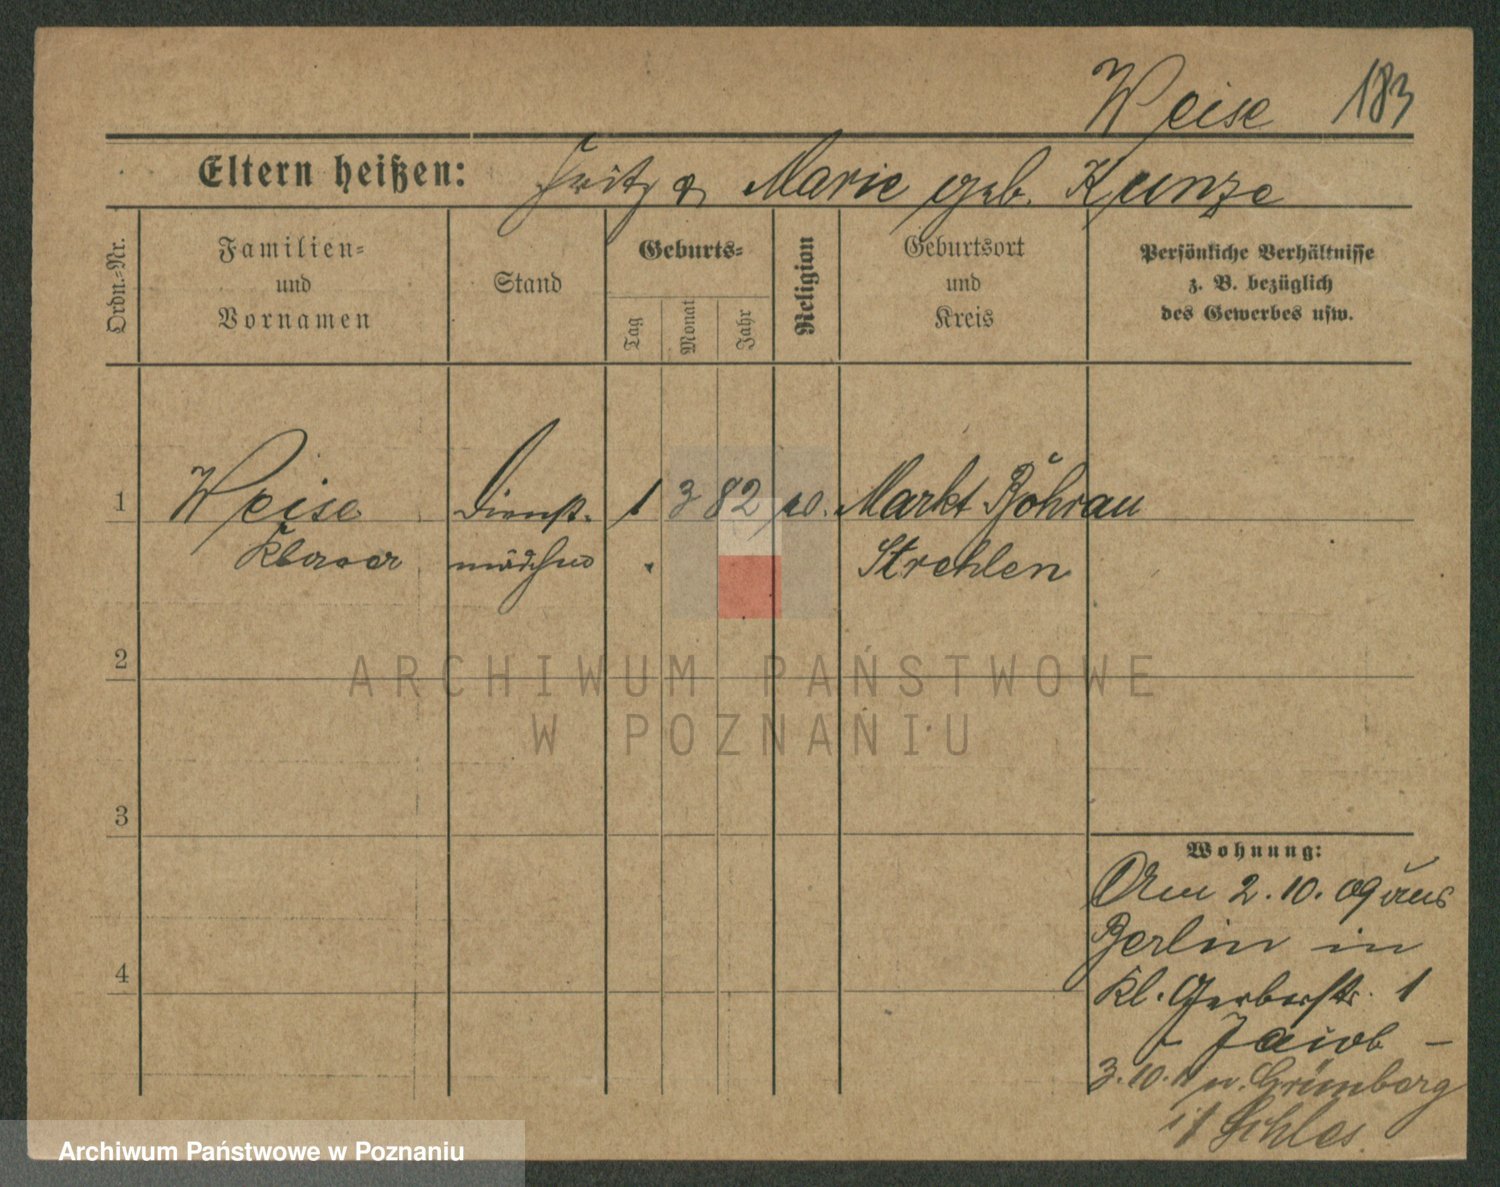 Weise 183
Eltern heißen: Fritz & Marie geb. Kunze
Ordn.-Nr.
Familien-
und
Vornamen
Stand
Geburts-
Tag
Monat
Jahr
Religion
Geburtsort
und
Kreis
Persönliche Verhältnisse
z. B. bezüglich
des Gewerbes usw.
1 Weise Dienst- 1 3 82 Markt Bohrau
Klara mädchen Strehlen
2
3
4
Wohnung:
Am 2.10.09 aus
Berlin in
Kl. Gerberstr. 1
- Jacob -
3.10. n. Grünberg
i/ Schles.
ARCHIWUM PAŃSTWOWE
W POZNANIU
Archiwum Państwowe w Poznaniu